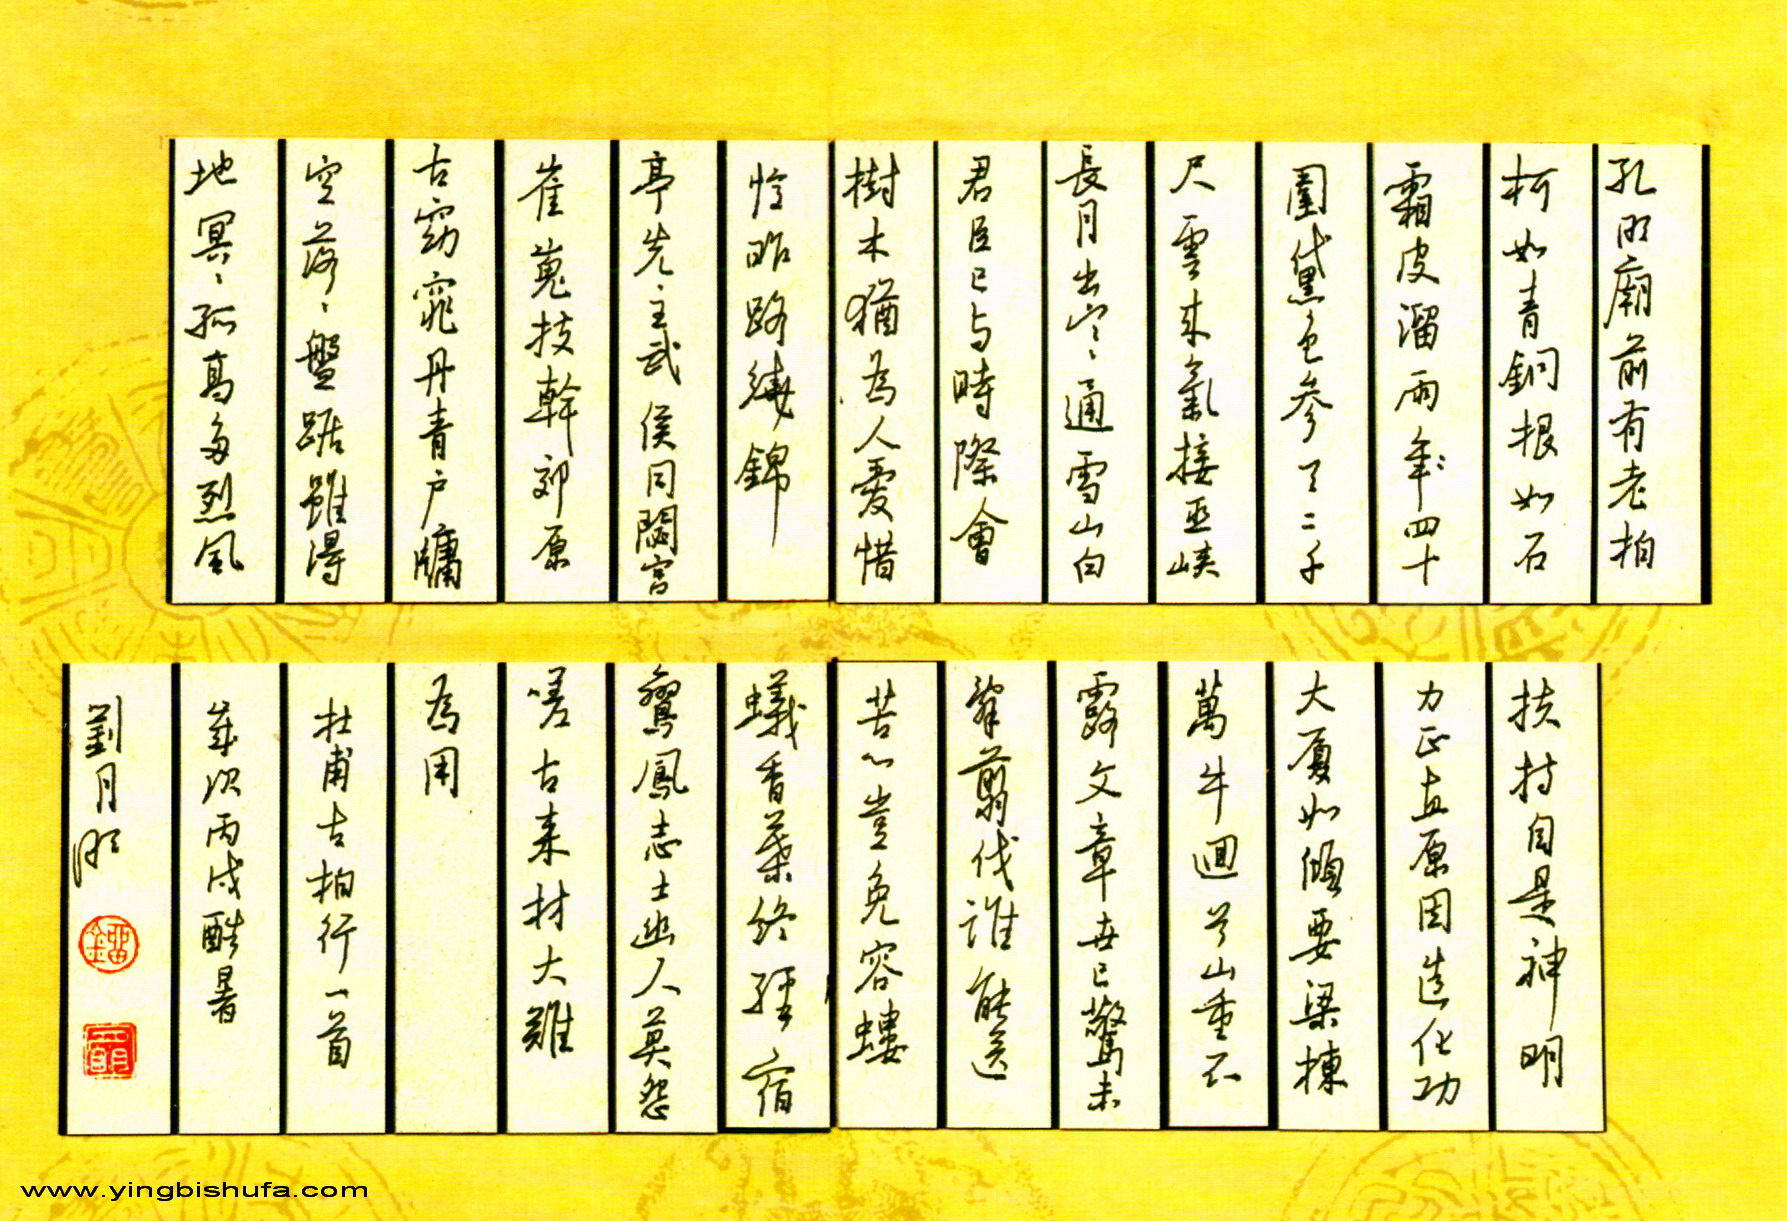 孔明廟前有老柏
柯如青銅根如石
霜皮溜雨年四十
圍黛色參天二千
尺雲來氣接巫峽
長月出寒通雪山白
君臣已与時際會
樹木猶為人愛惜
憶昨路繞錦
亭先主武侯同閟宮
崔嵬枝幹郊原
古窈窕丹青戶牖
空落〻盤踞雖得
地冥〻孤高多烈風
扶持自是神明
力正直原因造化功
大廈如傾要梁棟
萬牛迴首山重不
露文章世已驚未
辭翦伐誰能送
苦心豈免容螻
蟻香葉終經宿
鸞鳳志士幽人莫怨
嗟古來材大難
為用
杜甫古柏行一首
歲次丙戌酷暑
劉月
www.yingbishufa.com